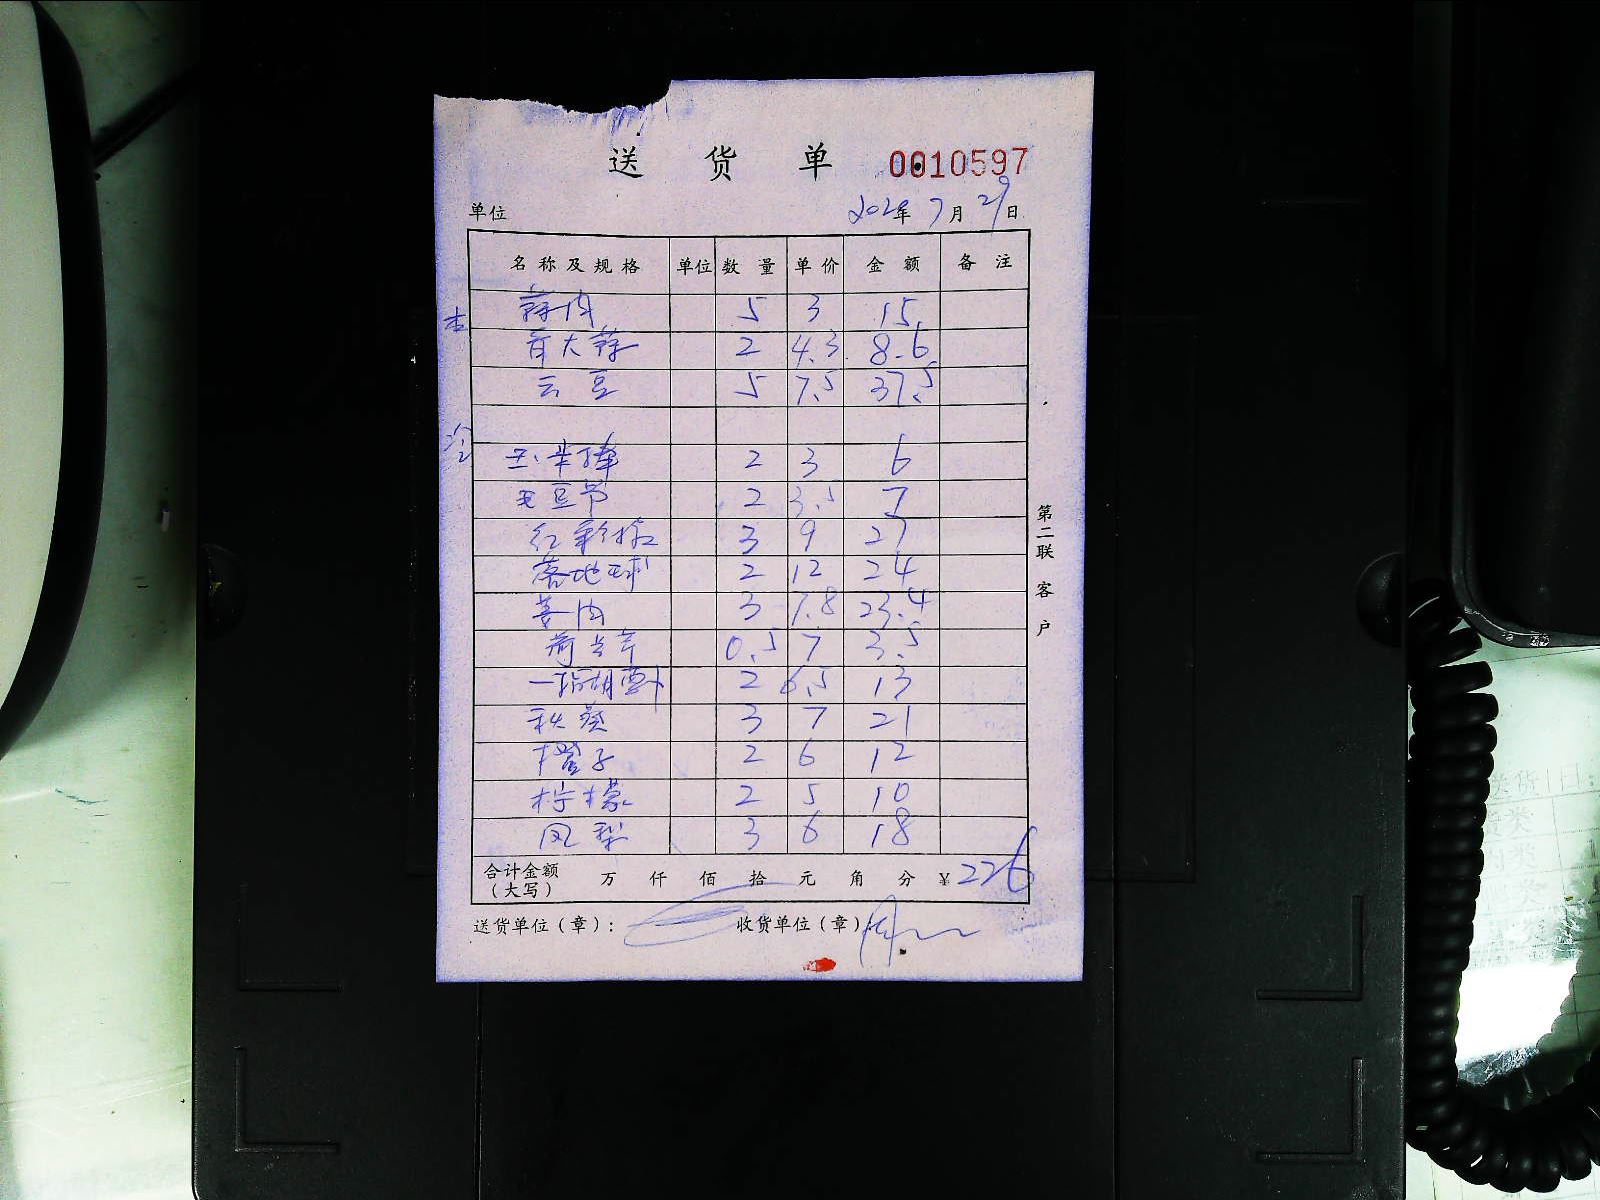 送货单 0010597
单位 2024年7月29日
名称及规格 单位 数量 单价 金额 备注
蒜肉 5 3 15
青大蒜 2 4.3 8.6
云豆 5 7.5 37.5
冷
2 3 6
毛豆节 2 3.5 7
红彩椒 3 9 27
落地球 2 12 24
姜肉 3 7.8 23.4
荷兰芹 0.5 7 3.5
2 6.5 13
秋葵 3 7 21
橙子 2 6 12
柠檬 2 5 10
凤梨 3 6 18
合计金额（大写） 万 仟 佰 拾 元 角 分 ¥226
送货单位（章）： 收货单位（章）
第二联 客户